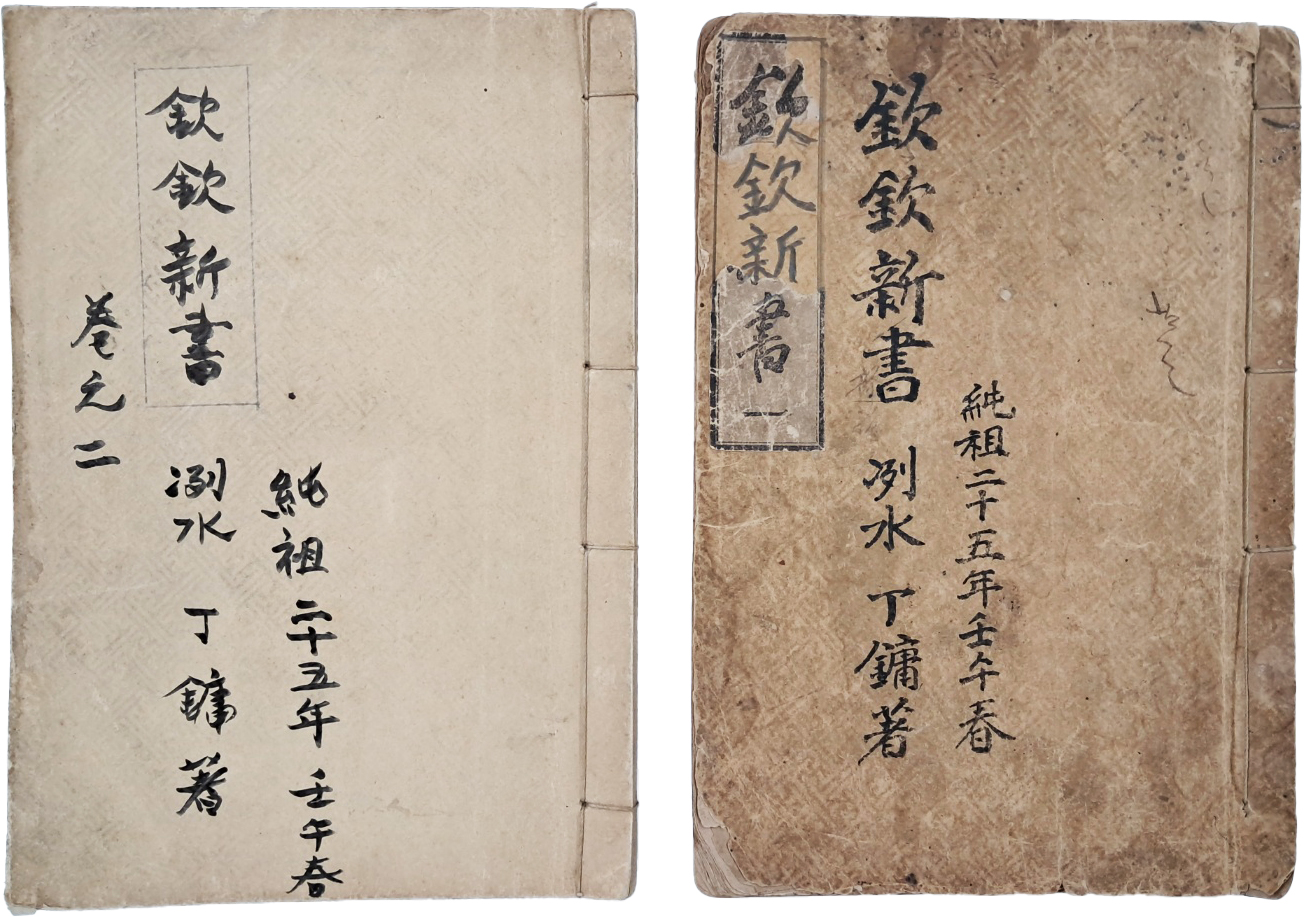 欽欽新書
卷之二
洌水 丁鏞著
純祖二十五年 壬午春
欽欽新書 一
欽欽新書 洌水 丁鏞著
純祖二十五年壬午春